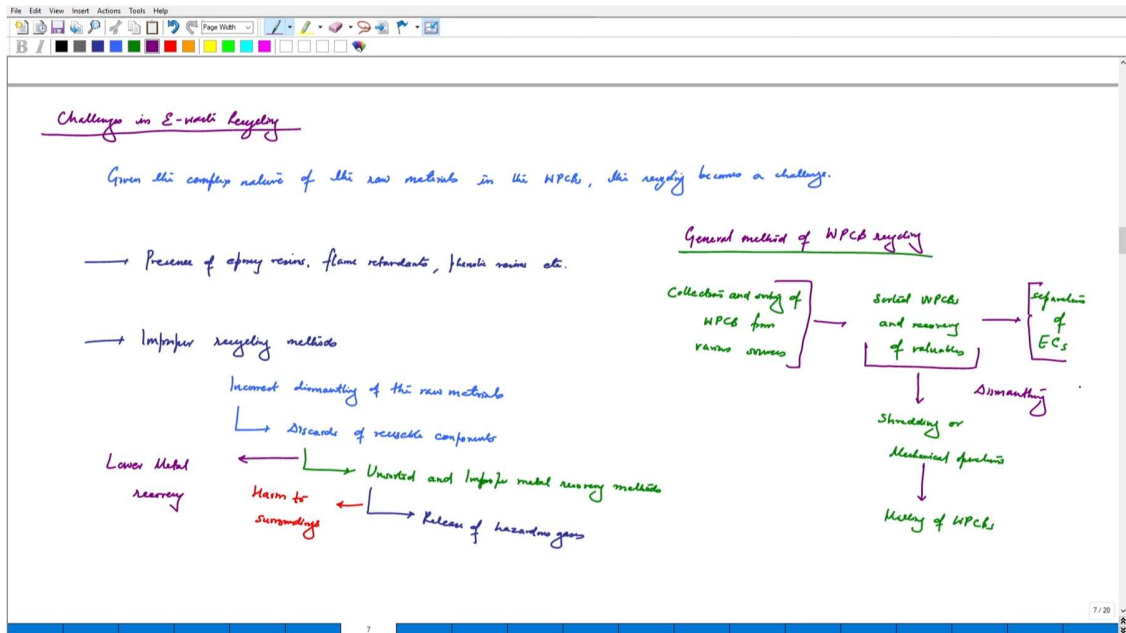 File Edit View Insert Actions Tools Help
Page Width
B I
Challenges in E-waste Recycling
Given the complex nature of the raw materials in the WPCBs, the recycling becomes a challenge.
→ Presence of epoxy resins, flame retardants, phenolic resins etc.
→ Improper recycling methods
Incorrect dismantling of the raw materials
Discards of reusable components
Unsorted and Improper metal recovery methods
Lower Metal
recovery
Release of hazardous gases
Harm to
surroundings
General method of WPCB recycling
Collection and sorting of
WPCB from
various sources
Sorted WPCBs
and recovery
of valuables
Separation
of
ECs
Dismantling
Shredding or
Mechanical operations
Milling of WPCBs
7 / 20
7